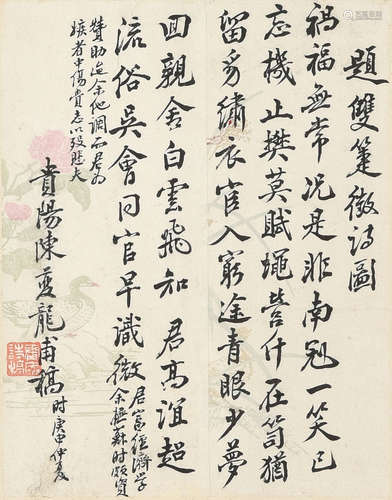 題雙篴徵詩圖
禍福無常況是非南冠一笑已
忘機止樊莫賦蠅營什在笱猶
留繡衣宦入窮途青眼少夢
回親舍白雲飛知 君高誼超
流俗吳會同官早識微
君富經濟學
余撫蘇時頗資
贊助迨余他調而君為
嫉者中傷賫志以歿悲夫
貴陽陳夔龍甫稿 時庚申仲夏